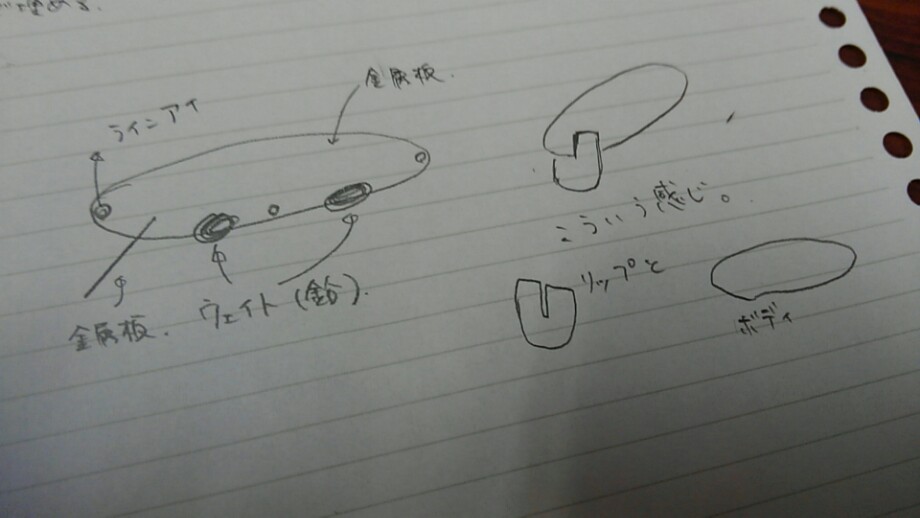 埋める.
金属板.
ラインアイ
金属板.
ウェイト(鉛).
こういう感じ。
リップと
ボディ